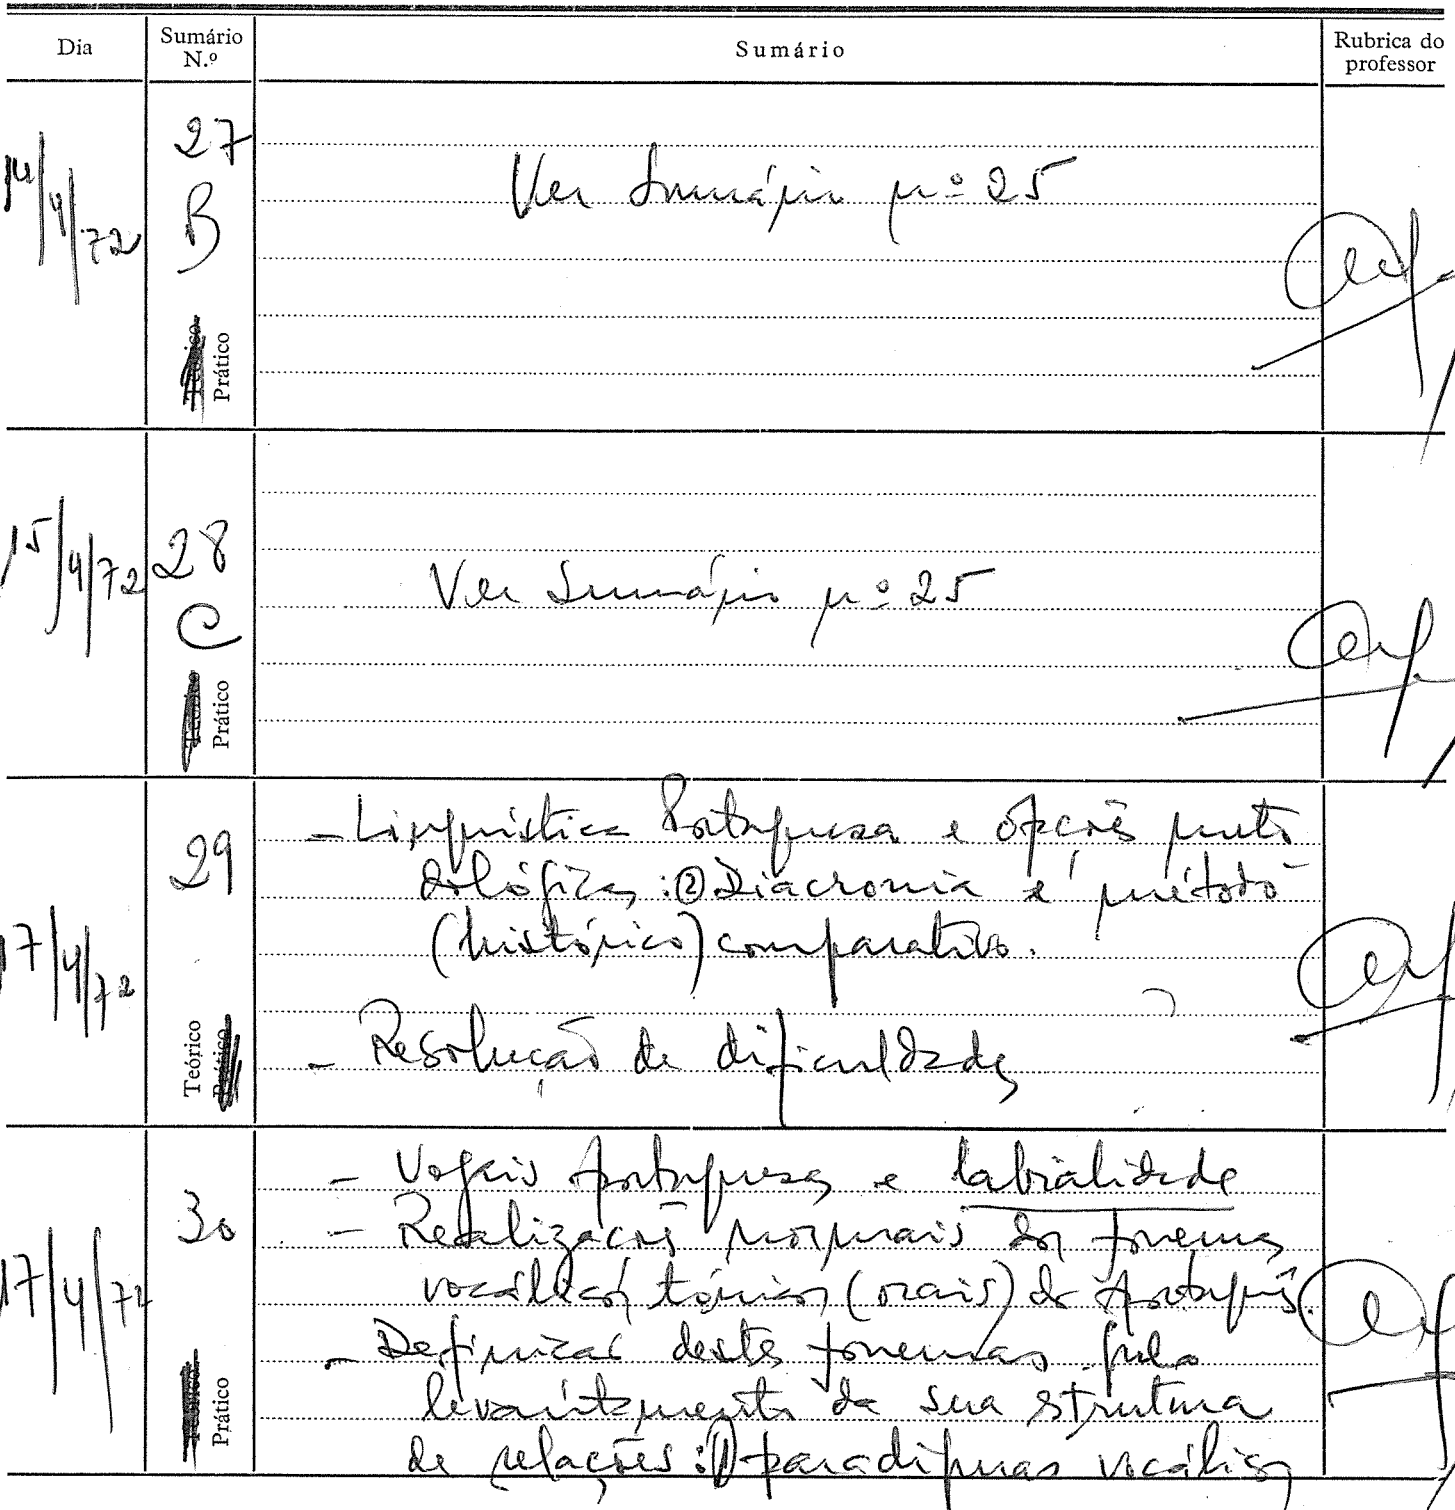 Dia
Sumário N.º
Sumário
Rubrica do professor
14/4/72
27
B
Teórico
Prático
Ver Sumário nº 25
15/4/72
28
C
Teórico
Prático
Ver Sumário nº 25
17/4/72
29
Teórico
Prático
- Linguística Portuguesa e opções meto
dológicas: ② Diacronia e método
(histórico) comparativo.
- Resolução de dificuldades
17/4/72
30
Teórico
Prático
- Vogais portuguesas e labialidade
- Realizações normais dos fonemas
vocálicos tónicos (orais) do português.
- Definição destes fonemas pelo
levantamento da sua estrutura
de relações: 1) paradigmas vocálicos